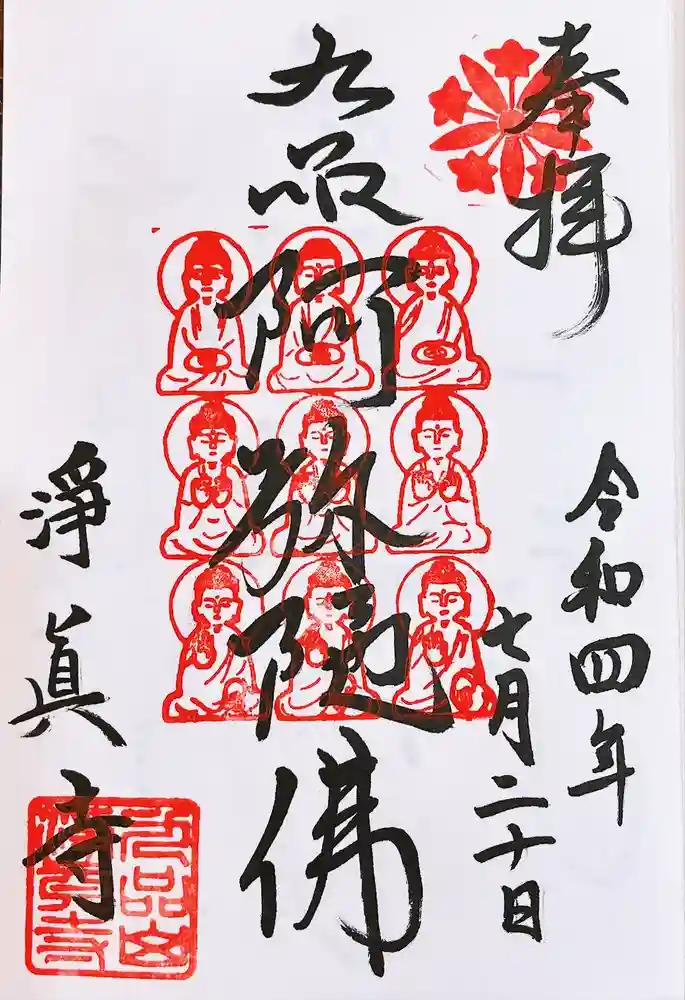 奉拝
令和四年
七月二十日
九品
阿弥陀佛
淨眞寺
九品山